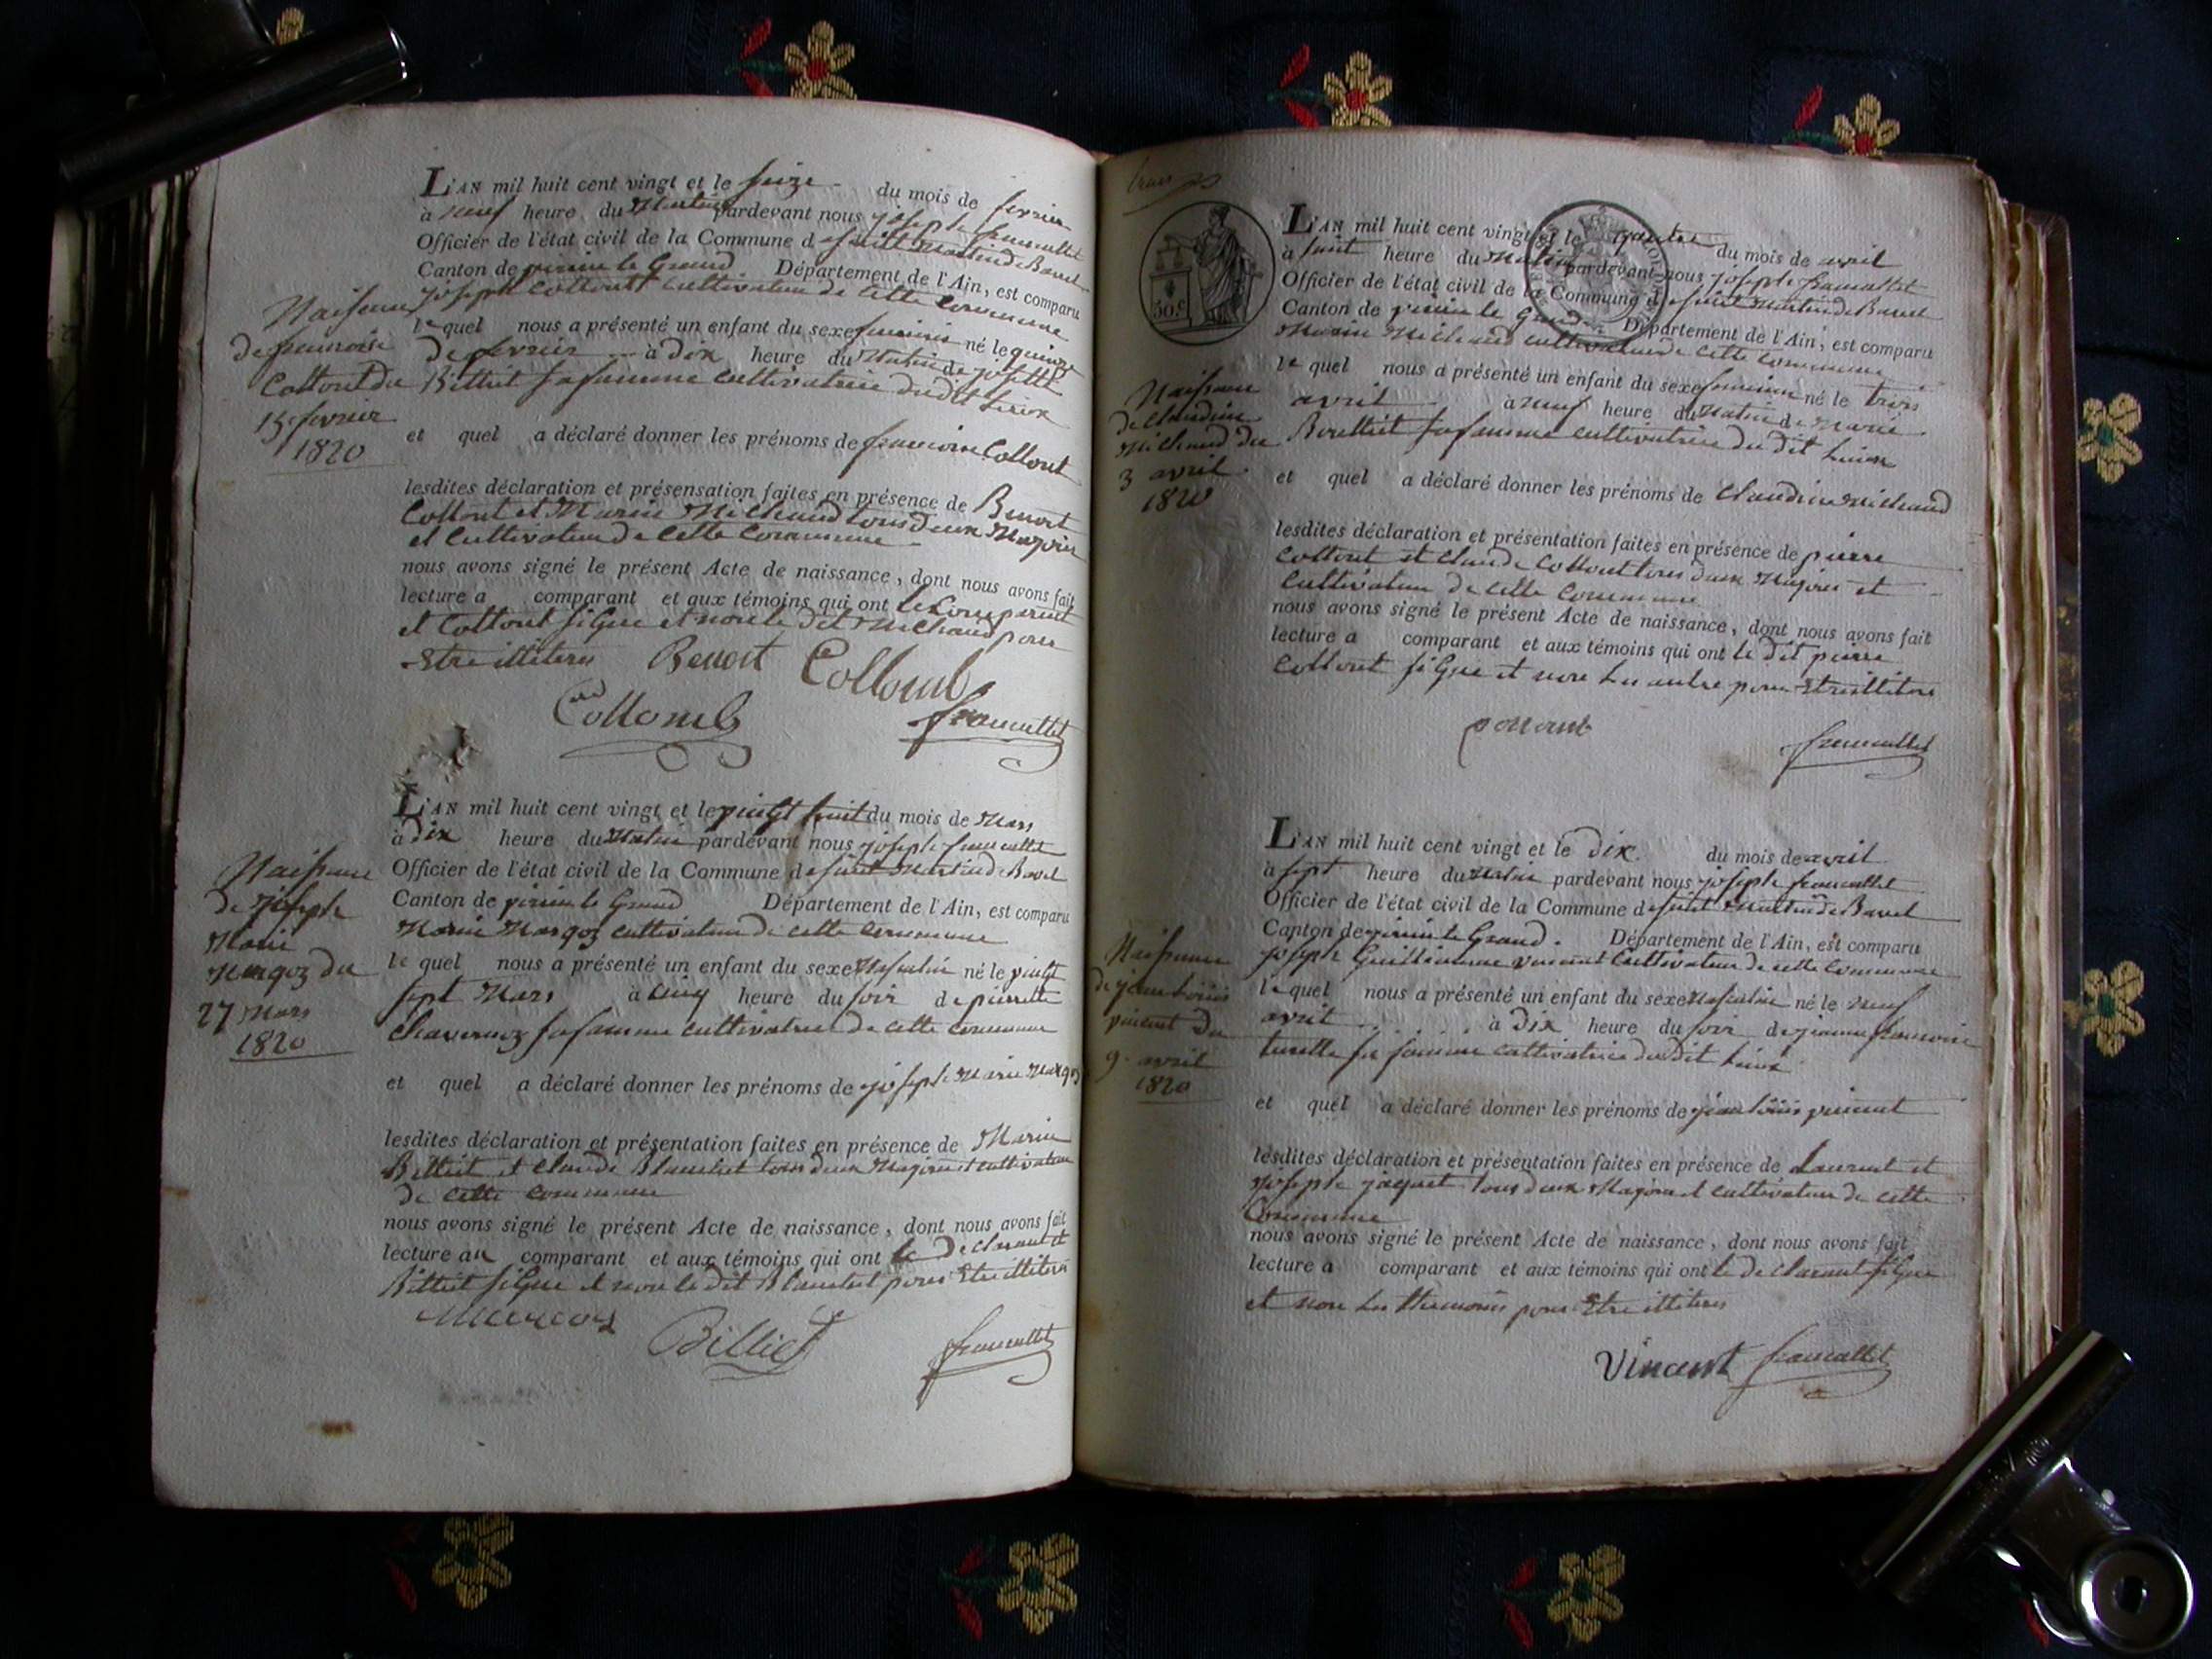 L'AN mil huit cent vingt et le seize du mois de fevrier
à neuf heure du Matin pardevant nous joseph francallet
Officier de l'état civil de la Commune de saint Martin de Bavel
Canton de virieu le Grand Département de l'Ain, est comparu
joseph Collont cultivateur de cette commune
lequel nous a présenté un enfant du sexe né le quinze
de fevrier à dix heure du Matin de josette
Billiet sa famme cultivatrice du dit Lieux
et quel a déclaré donner les prénoms de francoise Collont
lesdites déclaration et présensation faites en présence de Benoit
Collont et Marin Michaud tous deux Majeurs
et Cultivateur de cette Commune
nous avons signé le présent Acte de naissance, dont nous avons fait
lecture a comparant et aux témoins qui ont le Comparant
et Collont signe et non le dit Michaud pour
Etre illiteres Benoit Collomb
Collomb francallet
Naissance
de francoise
Collont du
15 fevrier
1820
L'AN mil huit cent vingt et le vingt huit du mois de Mars
à dix heure du Matin pardevant nous joseph francallet
Officier de l'état civil de la Commune de saint Martin de Bavel
Canton de virieu le Grand Département de l'Ain, est comparu
Marin Margoz cultivateur de cette commune
lequel nous a présenté un enfant du sexe Masculin né le vingt
sept Mars à cinq heure du soir de pierrette
Chavernoz sa famme cultivatrice de cette commune
et quel a déclaré donner les prénoms de joseph Marie Margoz
lesdites déclaration et présentation faites en présence de Marin
Billiet et Claude tous deux Majeurs et cultivateur
de cette commune
nous avons signé le présent Acte de naissance, dont nous avons fait
lecture au comparant et aux témoins qui ont le declarant et
Billiet signe et non le dit pour Etre illiteres
Billiet francallet
Naissance
de joseph
Marie
Margoz du
27 Mars
1820
50 c.
L'AN mil huit cent vingt et le quatre du mois de avril
à huit heure du Matin pardevant nous joseph francallet
Officier de l'état civil de la Commune de saint Martin de Bavel
Canton de virieu le Grand Département de l'Ain, est comparu
Marin Michaud cultivateur de cette commune
lequel nous a présenté un enfant du sexe feminin né le trois
avril à neuf heure du Matin de Marie
sa famme cultivatrice du dit Lieux
et quel a déclaré donner les prénoms de Claudine Michaud
lesdites déclaration et présentation faites en présence de pierre
Collont et Claude Collont tous deux Majeurs et
Cultivateur de cette commune
nous avons signé le présent Acte de naissance, dont nous avons fait
lecture a comparant et aux témoins qui ont le dit pierre
Collont signe et non les autre pour Etre illiteres
francallet
Naissance
de Claudine
Michaud du
3 avril
1820
L'AN mil huit cent vingt et le dix du mois de avril
à sept heure du Matin pardevant nous joseph francallet
Officier de l'état civil de la Commune de saint Martin de Bavel
Canton de virieu le Grand. Département de l'Ain, est comparu
joseph Guilliaume vincent Cultivateur de cette commune
lequel nous a présenté un enfant du sexe Masculin né le neuf
avril à dix heure du soir de jeanne francoise
sa famme cultivatrice du Dit Lieux
et quel a déclaré donner les prénoms de jean loüis vincent
lesdites déclaration et présentation faites en présence de Laurent et
joseph jaquet tous deux Majeur et cultivateur de cette
Commune
nous avons signé le présent Acte de naissance, dont nous avons fait
lecture a comparant et aux témoins qui ont le declarant signe
et non les temoins pour Etre illiteres
Vincent francallet
Naissance
de jean loüis
vincent du
9 avril
1820